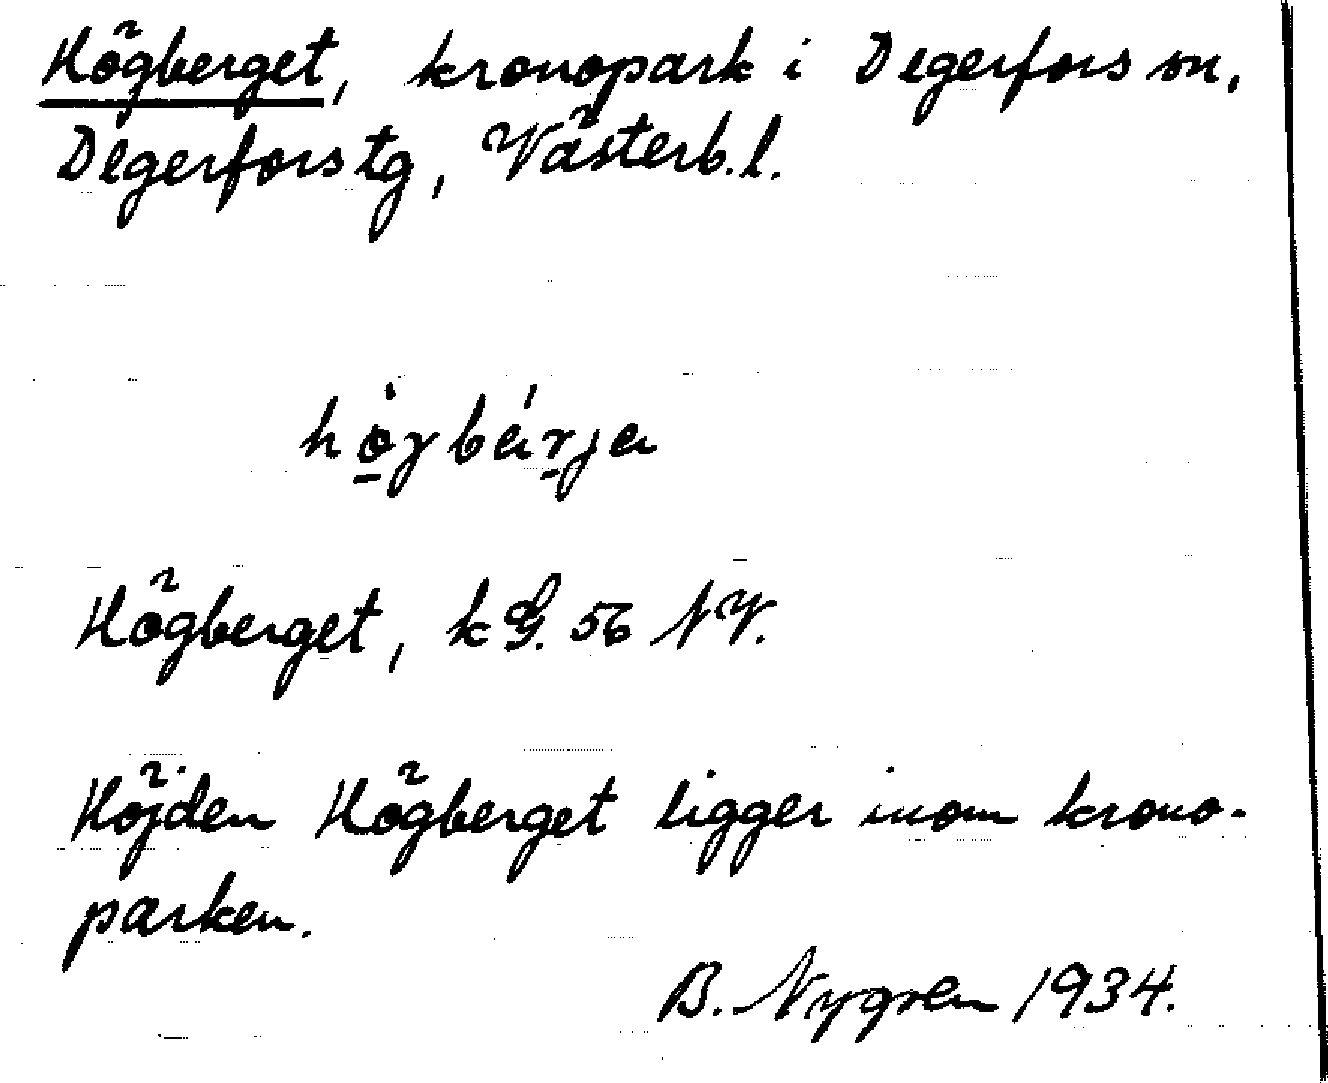 Högberget, kronopark i Degerfors sn,
Degerfors tg, Västerb. l.
Högberget, k G. 56 NV.
Höjden Högberget ligger inom krono-
parken.
B. Nygren 1934.